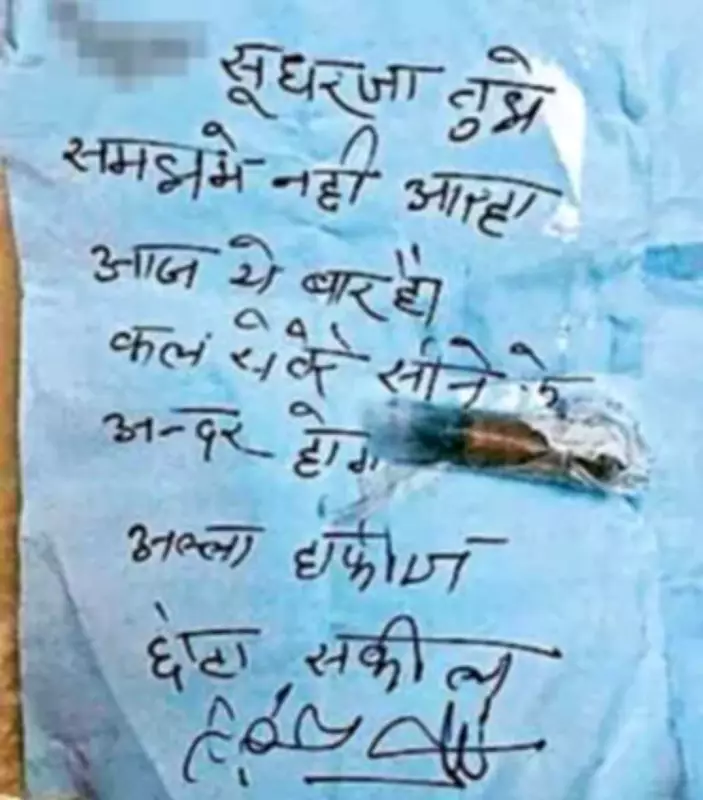 सूधरजा तुझे
समझमे नही आरहा
आज ये बार है
कल तेरे सीने के
अन्दर होगा
अल्ला हाफीज
छोटा सकील